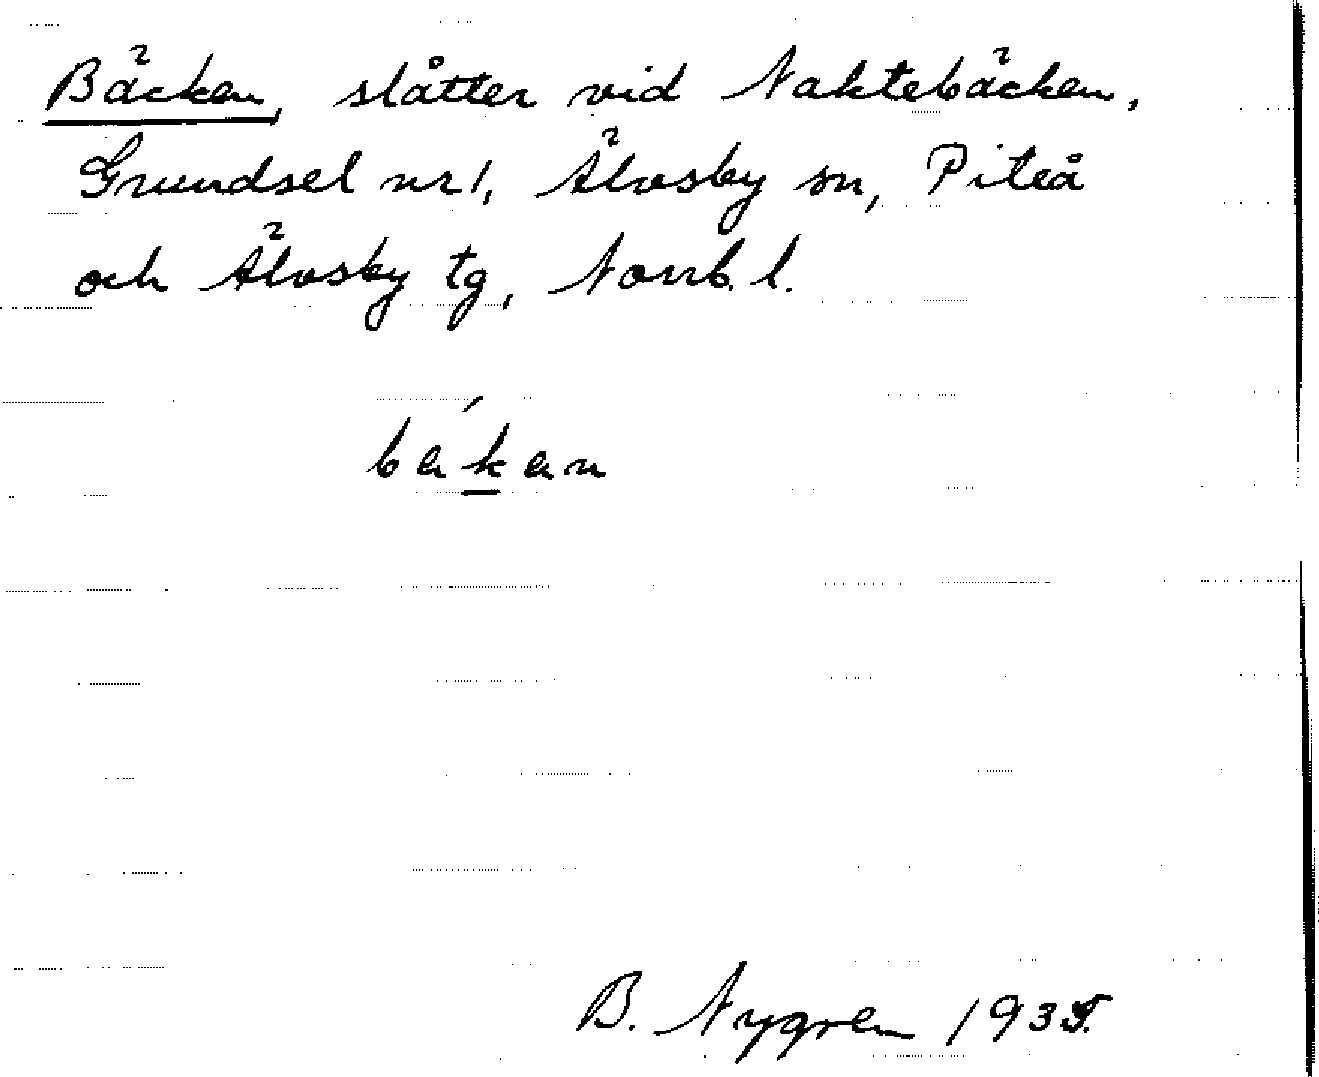 Bäcken, slåtter vid Naktebäcken,
Grundsel nr 1, Älvsby sn, Piteå
och Älvsby tg, Norrb. l.
bákan
B. Nygren 1935.